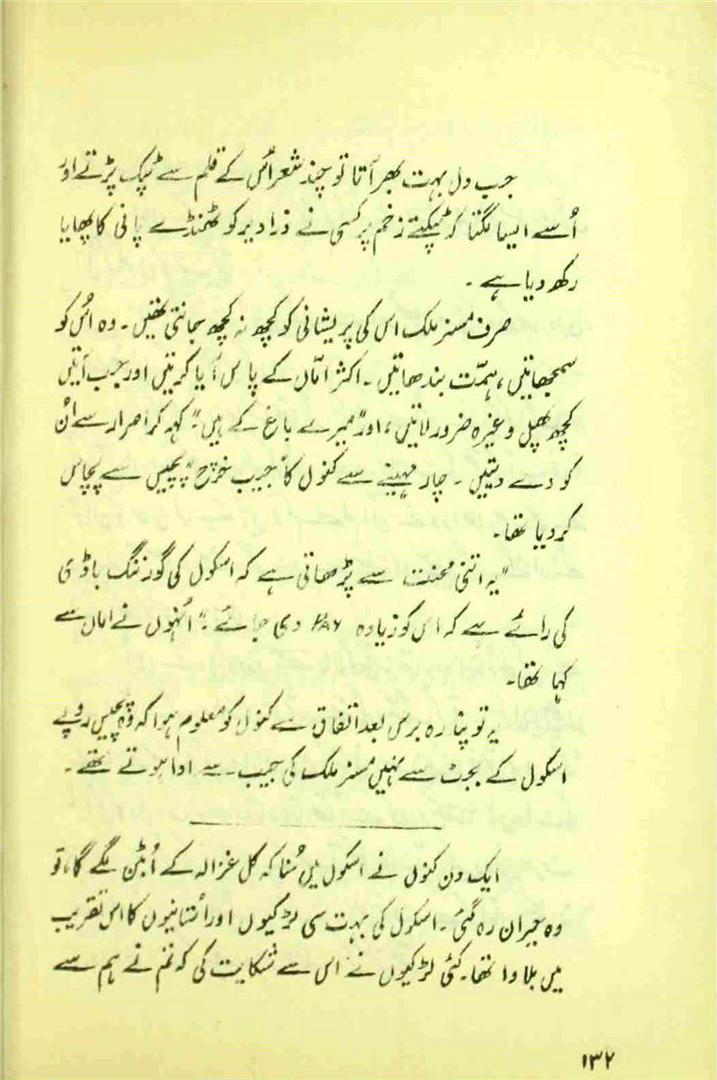 جب دل بہت بھر آتا تو چند شعر اُس کے قلم سے ٹپک پڑتے اور
اُسے ایسا لگتا کہ ٹپکتے زخم پر کسی نے ذرا دیر کو ٹھنڈے پانی کا پھایا
رکھ دیا ہے ۔
صرف مسز ملک اس کی پریشانی کو کچھ نہ کچھ جانتی تھیں ۔ وہ اُس کو
سمجھاتیں ، ہمّت بندھاتیں ۔ اکثر امّاں کے پاس آیا کرتیں اور جب آتیں
کچھ پھل وغیرہ ضرور لاتیں ، اور "میرے باغ کے ہیں" کہہ کر اصرار سے اُن
کو دے دیتیں ۔ چار مہینے سے کنول کا "جیب خرچ" پچیس سے پچاس
کر دیا تھا ۔
"یہ اتنی محنت سے پڑھاتی ہے کہ اسکول کی گورننگ باڈی
کی رائے ہے کہ اس کو زیادہ PAY دی جائے ۔" اُنہوں نے اماں سے
کہا تھا ۔
یہ تو پندرہ برس بعد اتفاق سے کنول کو معلوم ہوا کہ وہ پچیس روپے
اسکول کے بجٹ سے نہیں مسز ملک کی جیب سے ادا ہوتے تھے ۔
ایک دن کنول نے اسکول میں سُنا کہ کل غزالہ کے اُبٹن لگے گا ، تو
وہ حیران رہ گئی ۔ اسکول کی بہت سی لڑکیوں اور اُستانیوں کا اس تقریب
میں بلاوا تھا ۔ کئی لڑکیوں نے اس سے شکایت کی کہ تم نے ہم سے
۱۳۲